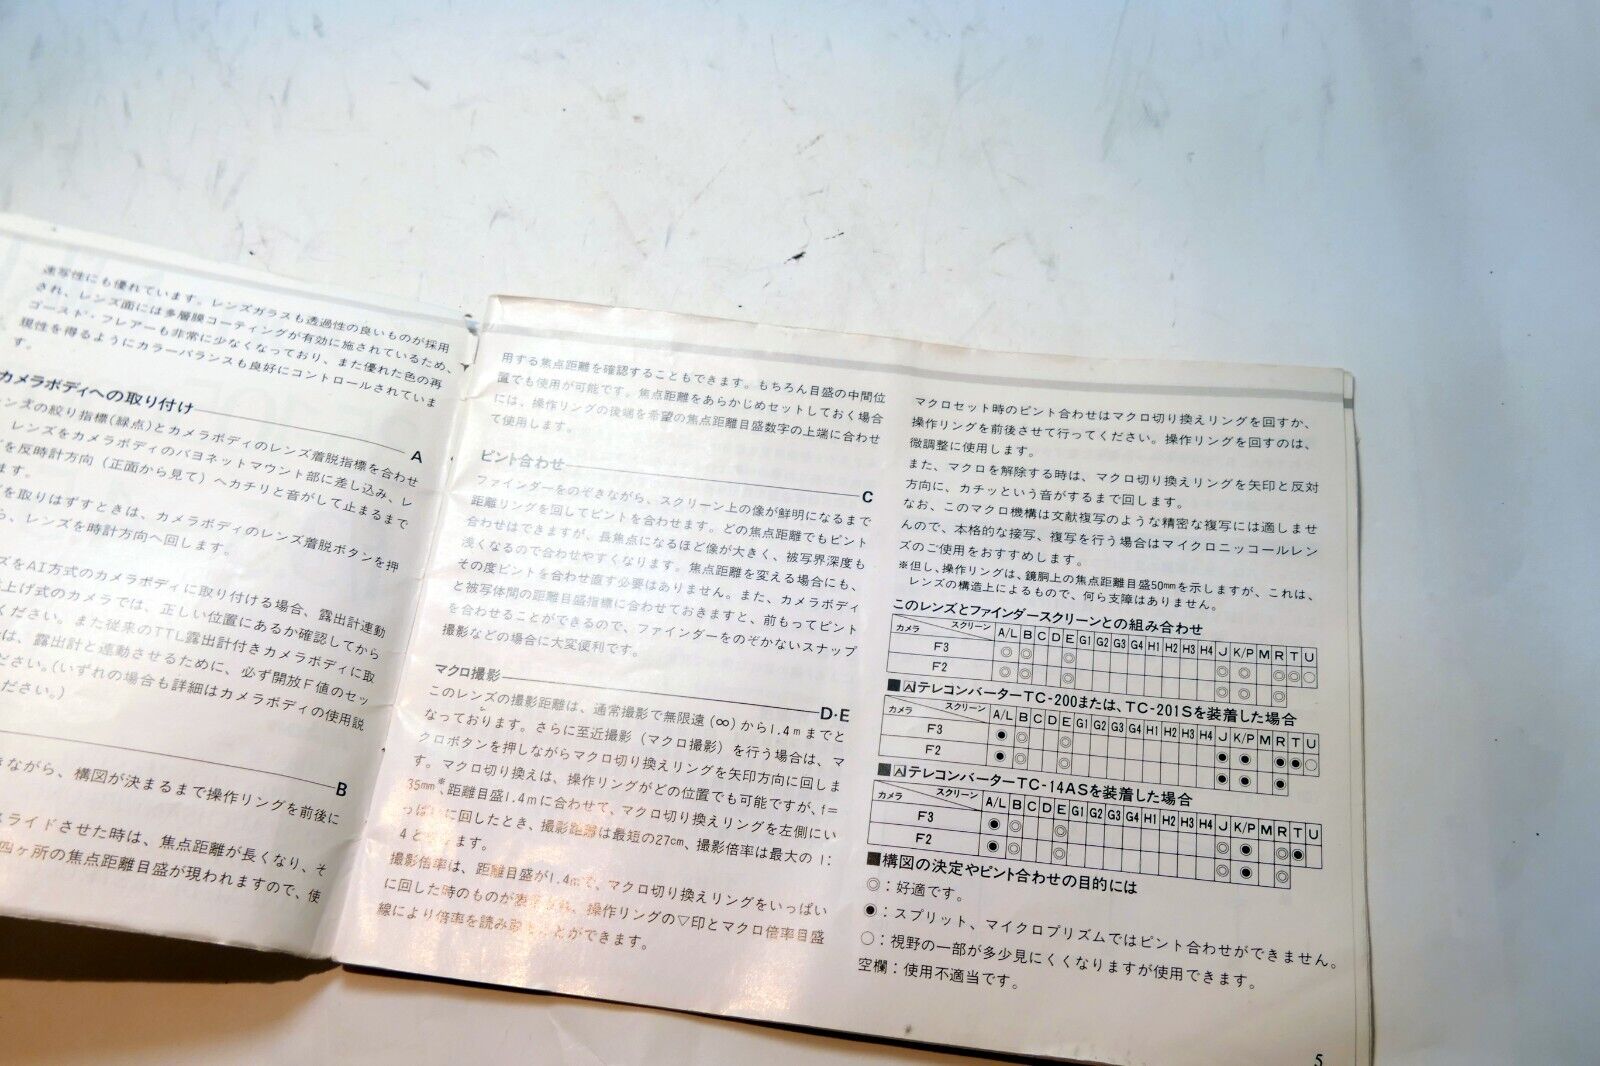 速写性にも優れています。レンズガラスも透過性の良いものが採用
され、レンズ面には多層膜コーティングが有効に施されているため、
ゴースト・フレアーも非常に少なくなっており、また優れた色の再
現性を得るようにカラーバランスも良好にコントロールされていま
す。
カメラボディへの取り付け A
ンズの絞り指標(緑点)とカメラボディのレンズ着脱指標を合わせ
レンズをカメラボディのバヨネットマウント部に差し込み、レ
を反時計方向(正面から見て)へカチリと音がして止まるまで
ます。
を取りはずすときは、カメラボディのレンズ着脱ボタンを押
ら、レンズを時計方向へ回します。
ズをAI方式のカメラボディに取り付ける場合、露出計連動
上げ式のカメラでは、正しい位置にあるか確認してから
ください。また従来のTTL露出計付きカメラボディに取
は、露出計と連動させるために、必ず開放F値のセッ
ださい。(いずれの場合も詳細はカメラボディの使用説
ださい。)
B
きながら、構図が決まるまで操作リングを前後に
スライドさせた時は、焦点距離が長くなり、そ
四ヶ所の焦点距離目盛が現われますので、使
用する焦点距離を確認することもできます。もちろん目盛の中間位
置でも使用が可能です。焦点距離をあらかじめセットしておく場合
には、操作リングの後端を希望の焦点距離目盛数字の上端に合わせ
て使用します。
ピント合わせ C
ファインダーをのぞきながら、スクリーン上の像が鮮明になるまで
距離リングを回してピントを合わせます。どの焦点距離でもピント
合わせはできますが、長焦点になるほど像が大きく、被写界深度も
浅くなるので合わせやすくなります。焦点距離を変える場合にも、
その度ピントを合わせ直す必要はありません。また、カメラボディ
と被写体間の距離目盛指標に合わせておきますと、前もってピント
を合わせることができるので、ファインダーをのぞかないスナップ
撮影などの場合に大変便利です。
マクロ撮影 D・E
このレンズの撮影距離は、通常撮影で無限遠(∞)から1.4mまでと
なっております。さらに至近撮影(マクロ撮影)を行う場合は、マ
クロボタンを押しながらマクロ切り換えリングを矢印方向に回しま
す。マクロ切り換えは、操作リングがどの位置でも可能ですが、f=
35mm※、距離目盛1.4mに合わせて、マクロ切り換えリングを左側にい
っぱいに回したとき、撮影距離は最短の27cm、撮影倍率は最大の1:
4となります。
撮影倍率は、距離目盛が1.4mで、マクロ切り換えリングをいっぱい
に回した時のものが表示され、操作リングの▽印とマクロ倍率目盛
線により倍率を読み取ることができます。
マクロセット時のピント合わせはマクロ切り換えリングを回すか、
操作リングを前後させて行ってください。操作リングを回すのは、
微調整に使用します。
また、マクロを解除する時は、マクロ切り換えリングを矢印と反対
方向に、カチッという音がするまで回します。
なお、このマクロ機構は文献複写のような精密な複写には適しませ
んので、本格的な接写、複写を行う場合はマイクロニッコールレン
ズのご使用をおすすめします。
※但し、操作リングは、鏡胴上の焦点距離目盛50mmを示しますが、これは、
レンズの構造上によるもので、何ら支障はありません。
このレンズとファインダースクリーンとの組み合わせ
カメラ スクリーン A/L B C D E G1 G2 G3 G4 H1 H2 H3 H4 J K/P M R T U
F3 ◎ ◎ ◎ ◎ ◎ ◎ ◎ ○
F2 ◎ ◎ ◎ ◎ ◎ ◎
■AテレコンバーターTC-200または、TC-201Sを装着した場合
カメラ スクリーン A/L B C D E G1 G2 G3 G4 H1 H2 H3 H4 J K/P M R T U
F3 ● ◎ ◎ ● ● ● ● ○
F2 ● ◎ ◎ ● ● ●
■AテレコンバーターTC-14ASを装着した場合
カメラ スクリーン A/L B C D E G1 G2 G3 G4 H1 H2 H3 H4 J K/P M R T U
F3 ● ◎ ◎ ◎ ● ◎ ●
F2 ● ◎ ◎ ◎ ● ◎
■構図の決定やピント合わせの目的には
◎:好適です。
●:スプリット、マイクロプリズムではピント合わせができません。
○:視野の一部が多少見にくくなりますが使用できます。
空欄:使用不適当です。
5